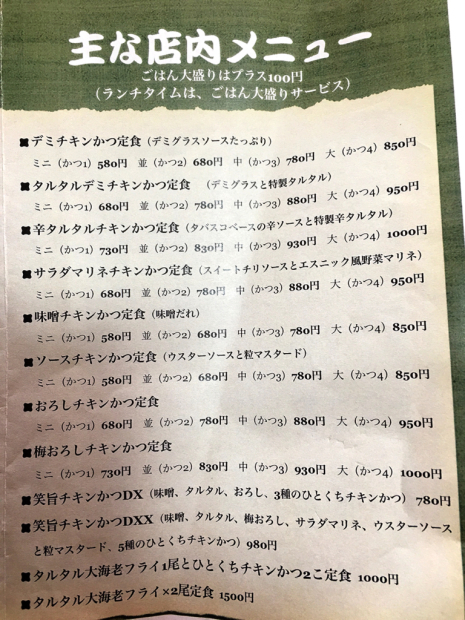 主な店内メニュー
ごはん大盛りはプラス100円
（ランチタイムは、ごはん大盛りサービス）
✖デミチキンかつ定食（デミグラスソースたっぷり）
ミニ（かつ1）580円　並（かつ2）680円　中（かつ3）780円　大（かつ4）850円
✖タルタルデミチキンかつ定食　（デミグラスと特製タルタル）
ミニ（かつ1）680円　並（かつ2）780円　中（かつ3）880円　大（かつ4）950円
✖辛タルタルチキンかつ定食（タバスコベースの辛ソースと特製辛タルタル）
ミニ（かつ1）730円　並（かつ2）830円　中（かつ3）930円　大（かつ4）1000円
✖サラダマリネチキンかつ定食（スイートチリソースとエスニック風野菜マリネ）
ミニ（かつ1）680円　並（かつ2）780円　中（かつ3）880円　大（かつ4）950円
✖味噌チキンかつ定食（味噌だれ）
ミニ（かつ1）580円　並（かつ2）680円　中（かつ3）780円　大（かつ4）850円
✖ソースチキンかつ定食（ウスターソースと粒マスタード）
ミニ（かつ1）580円　並（かつ2）680円　中（かつ3）780円　大（かつ4）850円
✖おろしチキンかつ定食
ミニ（かつ1）680円　並（かつ2）780円　中（かつ3）880円　大（かつ4）950円
✖梅おろしチキンかつ定食
ミニ（かつ1）730円　並（かつ2）830円　中（かつ3）930円　大（かつ4）1000円
✖笑旨チキンかつDX（味噌、タルタル、おろし、3種のひとくちチキンかつ）780円
✖笑旨チキンかつDXX（味噌、タルタル、梅おろし、サラダマリネ、ウスターソース
と粒マスタード、5種のひとくちチキンかつ）980円
✖タルタル大海老フライ1尾とひとくちチキンかつ2こ定食　1000円
✖タルタル大海老フライ×2尾定食　1500円